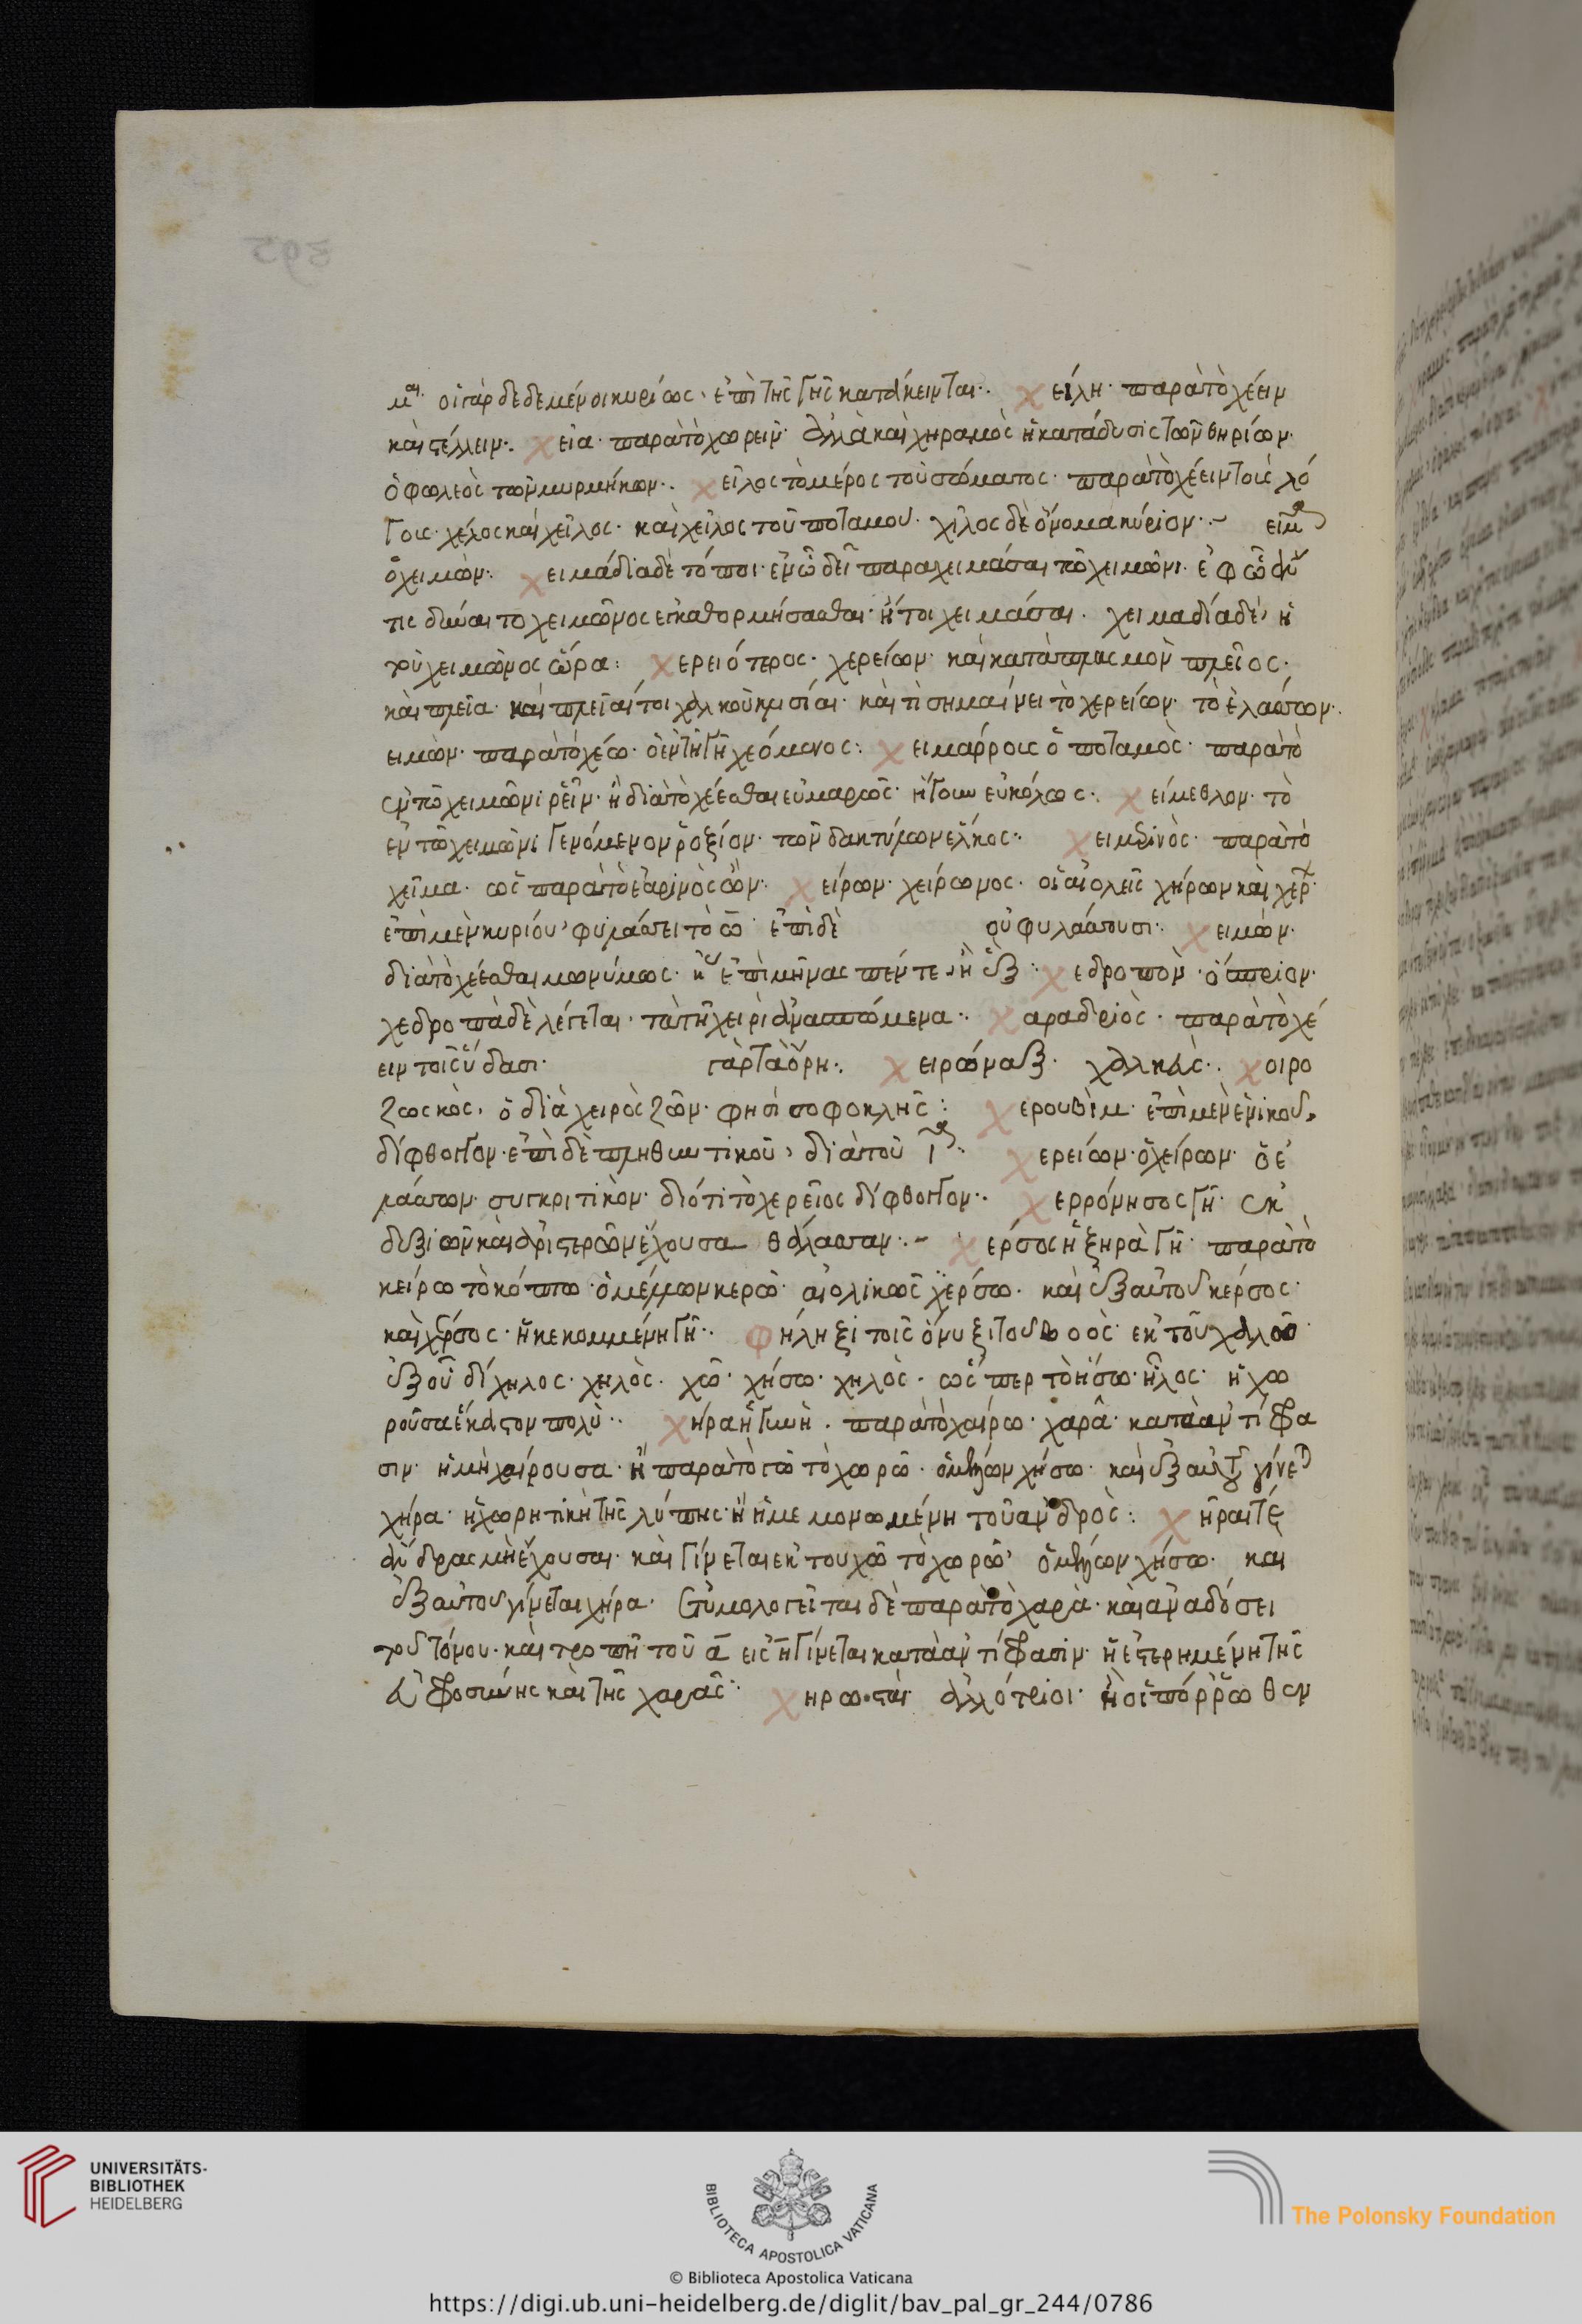 μαι οἱ γὰρ δεδεμένοι κυρίως, ἐπὶ τῆς γῆς κατάκεινται. χείλη παρὰ τὸ χέειν
καὶ στέλλειν. χειὰ παρὰ τὸ χωρεῖν ἀλλὰ καὶ χηραμὸς ἡ κατάδυσις τῶν θηρίων
ὁ φωλεὸς τῶν μυρμήκων. χεῖλος τὸ μέρος τοῦ στόματος παρὰ τὸ χέειν τοὺς λό
γους χέλος καὶ χεῖλος καὶ χεῖλος τοῦ ποταμοῦ χῖλος δὲ ὄνομα κύριον. εῖμα
ὁ χειμὼν. χειμάδια δὲ τόποι ἐν ᾧ δεῖ παραχειμάσαι τῷ χειμῶνι ἐφ ᾧ ἄν
τις δύναιτο χειμῶνος εἰσκαθορμήσασθαι ἤτοι χειμάσαι. χειμαδία δὲ, ἡ
τοῦ χειμῶνος ὥρα: χερειότερος χερείων καὶ κατὰ πλεονασμὸν πλεῖος
καὶ πλεῖα καὶ πλεῖαί τοι χαλκοῦ κλισίαι καὶ τί σημαίνει τὸ χερείων τὸ ἐλάσσων.
ειμὼν παρὰ τὸ χέω ὁ ἐν τῇ γῇ χεόμενος: χειμάρρους ὁ ποταμὸς παρὰ τὸ
ἐν τῷ χειμῶνι ῥεῖν ἢ διὰ τὸ χέεσθαι εὐμαρῶς ἤγουν εὐκόλως. χείμεθλον τὸ
ἐν τῷ χειμῶνι γενόμενον τῶν δακτύλων ἕλκος. χειμερινὸς παρὰ τὸ
χεῖμα ὡς παρὰ τὸ ἐαρινὸς χείρων χείρωνος οἱ αἰολεῖς χήρων καὶ χερ
ἐπὶ μὲν κυρίου φυλάσσει τὸ ω ἐπὶ δὲ οὐ φυλάσσουσι. χειμὼν
διὰ τὸ χέεσθαι ἐπὶ μῆνας πέντε ἢ ἓξ. χεδροπὸν ὄσπριον
χεδροπὰ δὲ λέγεται τὰ τῇ χειρὶ ἀναπτόμενα. χαραδριὸς παρὰ τὸ χέ
ειν τοῖς ὕδασι γὰρ τὰ ὄρη. χειρώναξ χαλκεὺς. χοιρο
ὁ διὰ χειρὸς ζῶν φησὶ σοφοκλῆς: χερουβὶμ ἐπὶ μὲν ἑνικοῦ
δίφθογγον ἐπὶ δὲ πληθυντικοῦ, διὰ τοῦ ι. χερείων ὁ χείρων ὁ ἐ
λάσσων συγκριτικὸν διότι τὸ χερεῖος δίφθογγον. χερρόνησος γῆ ἐκ
δεξιῶν καὶ ἀριστερῶν ἔχουσα θάλασσαν. χέρσος ἡ ξηρὰ γῆ παρὰ τὸ
κείρω τὸ κόπτω ὁ μέλλων κερῶ αἰολικῶς χέρσω καὶ ἐξ αὐτοῦ κέρσος
καὶ χέρσος ἡ κεκομμένη γῆ. χηλῇσι τοῖς ὄνυξι τοῦ βοὸς ἐκ τοῦ χαλῶ
ἐξ οὗ δίχηλος χηλὸς χῶ χήσω χηλὸς ὥσπερ τὸ ἥσω ἧλος ἡ χω
ροῦσα ἕκαστον πολὺ. χήρα ἡ γυνὴ παρὰ τὸ χαίρω χαρὰ κατὰ ἀντίφρα
σιν ἡ μὴ χαίρουσα ἢ παρὰ τὸ χῶ τὸ χωρῶ ὁ μέλλων χήσω καὶ ἐξ αὐτοῦ γίνεται
χήρα ἡ χωρητικὴ τῆς λύπης ἢ ἡ μεμονωμένη τοῦ ἀνδρὸς: χῆραί τε
ἄνδρας μὴ ἔχουσαι καὶ γίνεται ἐκ του χῶ τὸ χωρῶ ὁ μέλλων χήσω και
ἐξ αὐτοῦ γίνεται χήρα. ἐτυμολογεῖται δὲ παρὰ τὸ χαρὰ καὶ ἀναδόσει
τοῦ τόνου καὶ τροπῇ τοῦ α εἰς η γίνεται κατὰ ἀντίφρασιν ἡ ἐστερημένη τῆς
εὐφροσύνης καὶ τῆς χαρᾶς: χηρωσταὶ ἀλλότριοι ἢ οἱ πόρρωθεν
UNIVERSITÄTS-
BIBLIOTHEK
HEIDELBERG
BIBLIOTECA APOSTOLICA VATICANA
The Polonsky Foundation
© Biblioteca Apostolica Vaticana
https://digi.ub.uni-heidelberg.de/diglit/bav_pal_gr_244/0786